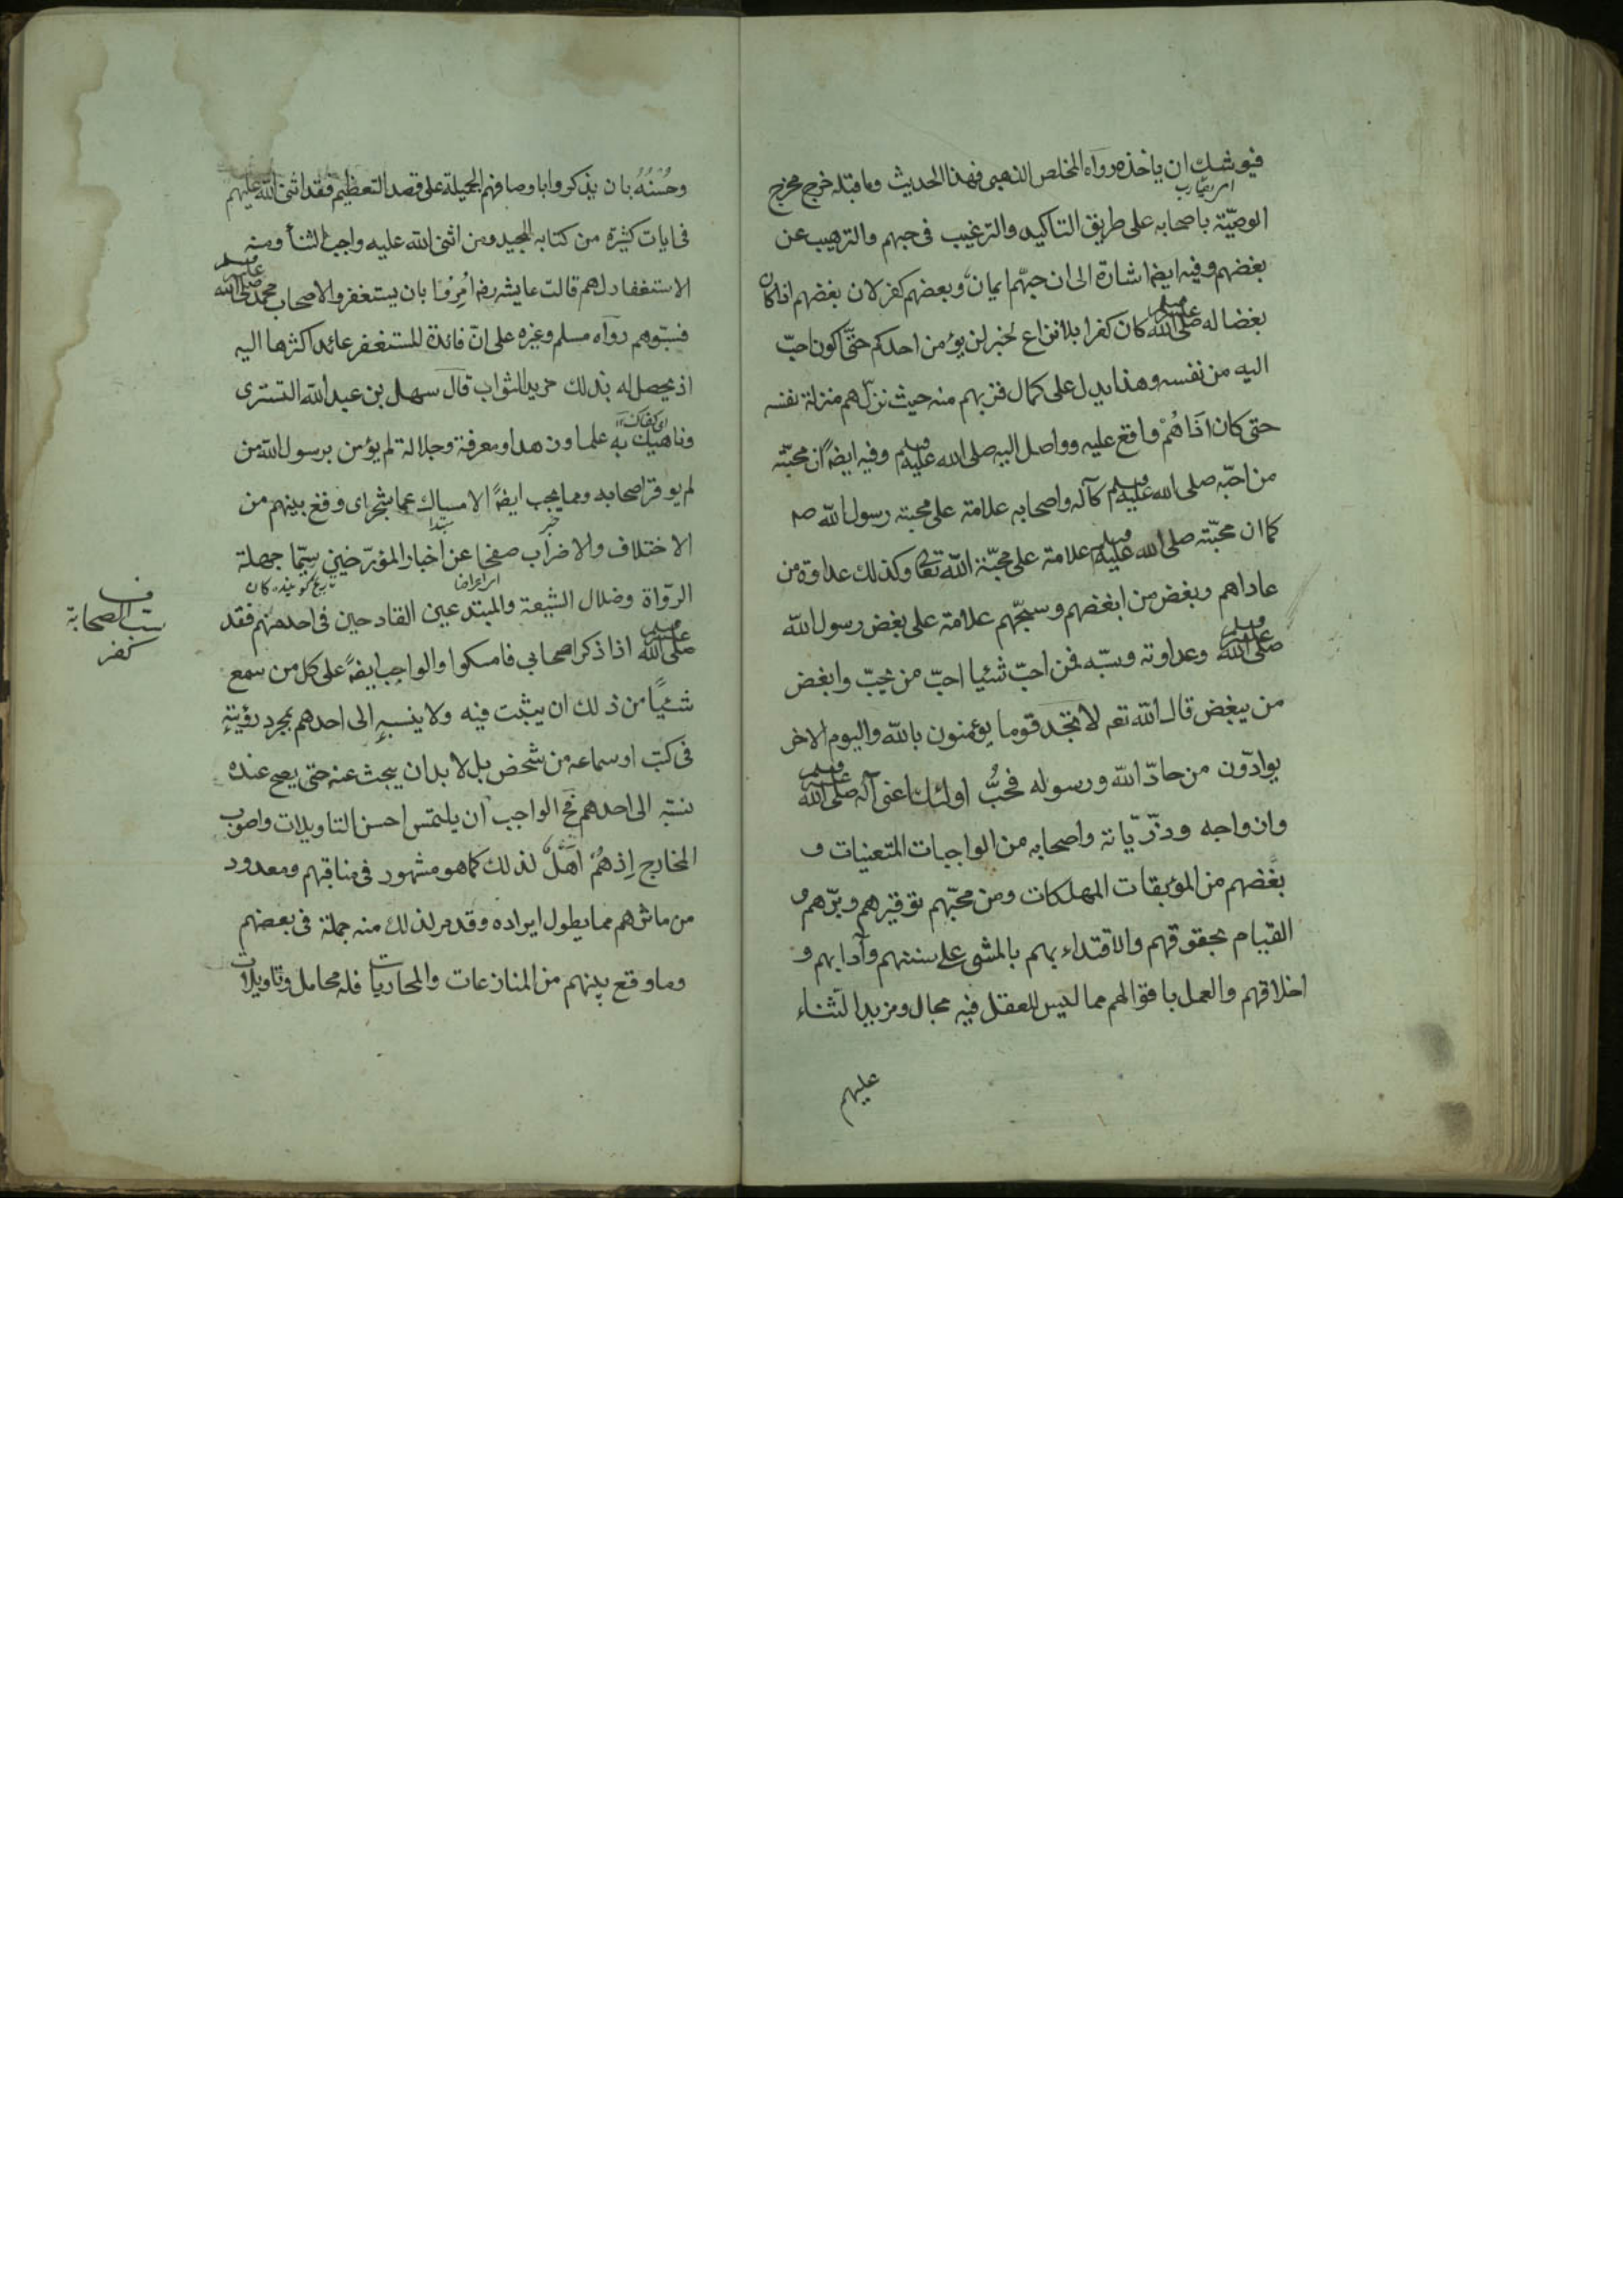 فيوشك ان ياخذه رواه المخلص الذهبي فهذا الحديث وما قبله خرج مخرج
الوصيّة باصحابه على طريق التاكيد والترغيب في حبهم والترهيب عن
بغضهم وفيه ايضا اشارة الى ان حبّهم ايمان وبعضهم كفر لان بغضهم اذا كان
بغضا له صلى الله عليه وسلم كان كفرا بلا نزاع لخبر لن يؤمن احدكم حتّى اكون احبّ
اليه من نفسه وهذا يدل على كمال قربهم منه حيث نزّلهم منزلة نفسه
حتى كان اذاهُمْ واقع عليه وواصل اليه صلى الله عليه وسلم وفيه ايضًا ان محبّته
من احبّه صلى الله عليه وسلم كآله واصحابه علامة على محبته رسول الله صم
كما ان محبّته صلى الله عليه وسلم علامة على محبّة الله تعالى وكذلك عداوة من
عاداهم وبغض من ابغضهم وسبّهم علامة على بغض رسول الله
صلى الله عليه وسلم وعداوته وسبّه فمن احبّ شئيا احبّ من يحبّ وابغض
من يبغض قال الله تعم لا تجد قوما يؤمنون بالله واليوم الاخر
يوادّون من حادّ الله ورسوله فحُبُّ اولئك اعنى آله صلى الله عليه وسلم
وازواجه وذرّيّاته واصحابه من الواجبات المتعينات و
بغضهم من المؤبقات المهلكات ومن محبّهم توقيرهم وبرّهم و
القيام بحقوقهم والاقتداء بهم بالمشى على سننهم وآدابهم و
اخلاقهم والعمل باقوالهم مما ليس للعقل فيه مجال ومزيد الثناء
عليهم
وحُسْنُهُ بان يذكروا باوصافهم الجميلة على قصد التعظيم فقد اثنى الله عليهم
في ايات كثيرة من كتابه المجيد ومن اثنى الله عليه واجب الثنأ ومنه
الاستغفار لهم قالت عايشه رضـ اُمِرُوا بان يستغفروا لاصحاب محمد صلى الله عليه وسلم
فسبّوهم رواه مسلم وغيره على انّ فائدة المستغفر عائد اكثرها اليه
اذ يحصل له بذلك مزيد الثواب قال سهل بن عبد الله التسترى
اى كفاك
وناهيك به علما وزهدا ومعرفة وجلالة لم يؤمن برسول الله من
لم يوقر اصحابه ومما يجب ايضًا الامساك عما شجر اى وقع بينهم من
الاختلاف والاضراب صفحا عن اخبار المؤرّخين سيّما جهلة
الرّواة وضلال الشيعة والمبتدعين القادحين في احد منهم فقد
صلى الله عليه وسلم اذا ذكر اصحابي فامسكوا والواجب ايضًا على كل من سمع
شئيًا من ذلك ان يثبت فيه ولا ينسبه الى احدهم بمجرد رؤيته
في كتب او سماعه من شخص بل لا بد ان يبحث عنه حتى يصح عنده
نسبته الى احدهم فح الواجب ان يلتمس احسن التاويلات واصوب
المخارج اِذ هُمْ اَهْلٌ لذلك كما هو مشهور في مناقبهم ومعدود
من ماثرهم مما يطول ايراده وقد مر لذلك منه جملة في بعضهم
وما وقع بينهم من المنازعات والمحاربات فله محامل وتاويلات
ف
سب الصحابة
كفر